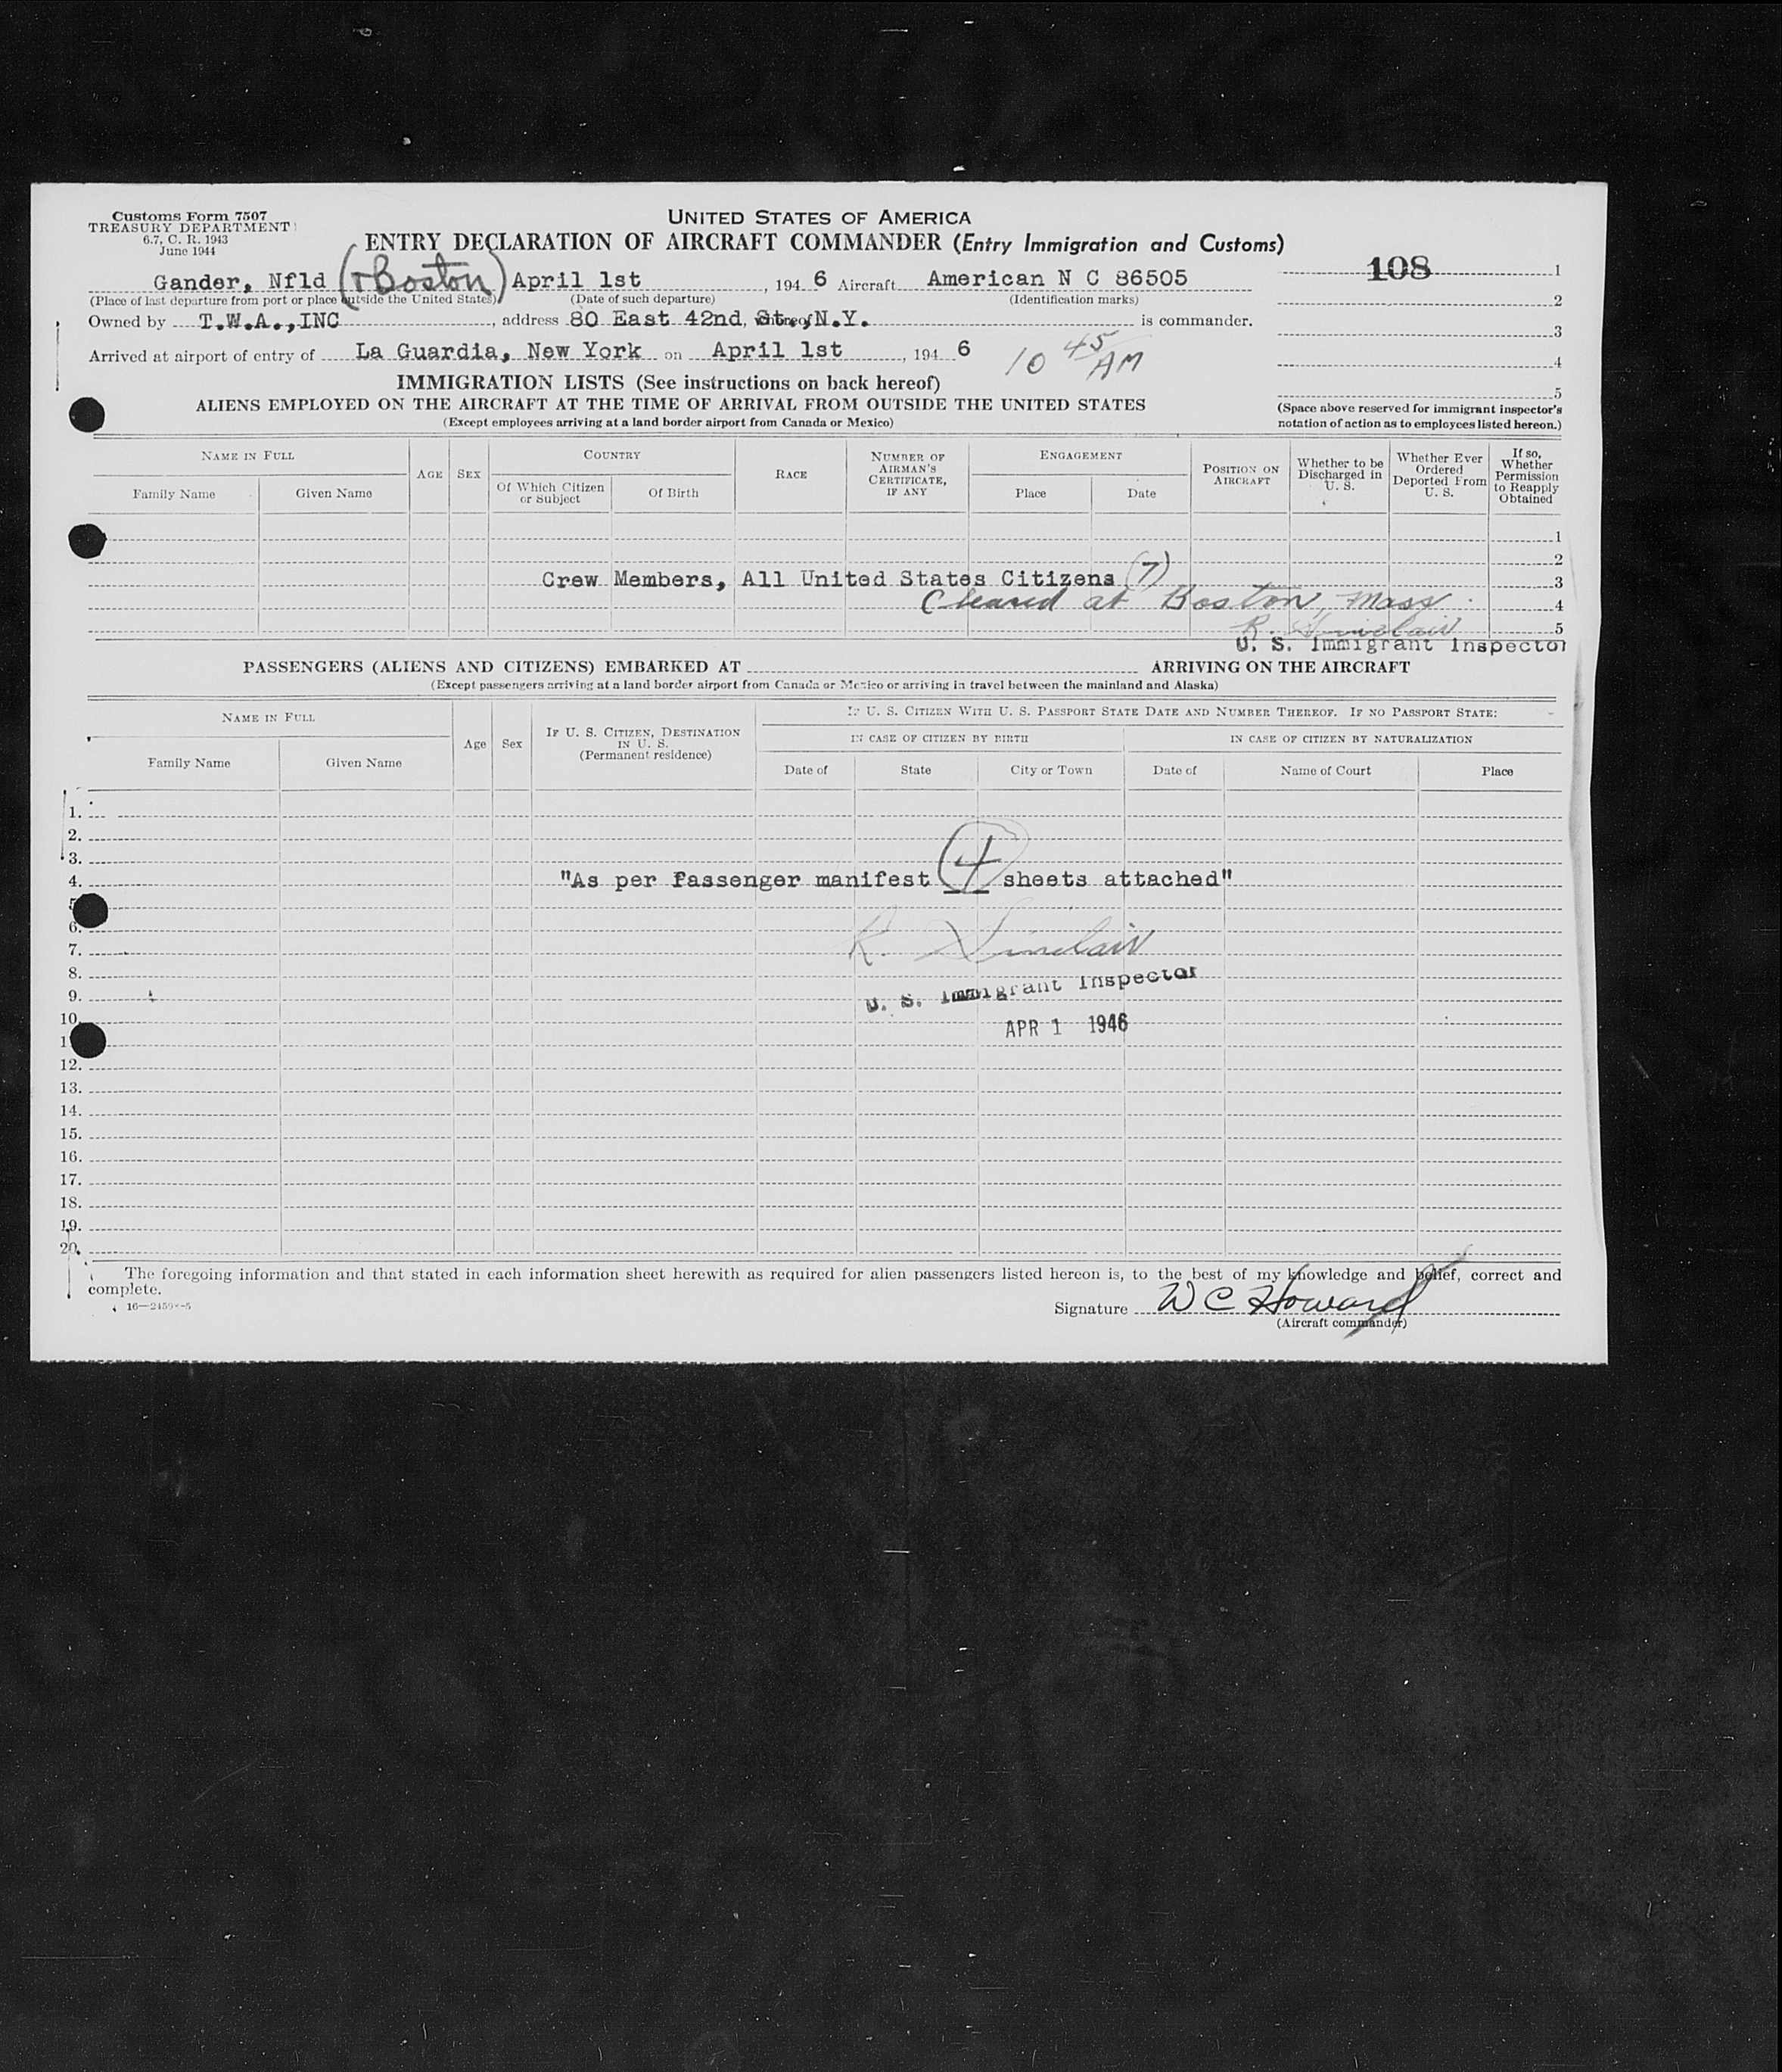 Customs Form 7507
TREASURY DEPARTMENT
6.7, C. R. 1943
June 1944
UNITED STATES OF AMERICA
ENTRY DECLARATION OF AIRCRAFT COMMANDER (Entry Immigration and Customs)
108
1
Gander, Nfld (+Boston) April 1st, 194 6 Aircraft American N C 86505
(Place of last departure from port or place outside the United States) (Date of such departure) (Identification marks)
2
Owned by T.W.A.,INC, address 80 East 42nd, St.,N.Y. whereof is commander.
3
Arrived at airport of entry of La Guardia, New York on April 1st, 194 6 10 45 AM
4
IMMIGRATION LISTS (See instructions on back hereof)
5
ALIENS EMPLOYED ON THE AIRCRAFT AT THE TIME OF ARRIVAL FROM OUTSIDE THE UNITED STATES
(Except employees arriving at a land border airport from Canada or Mexico)
(Space above reserved for immigrant inspector's
notation of action as to employees listed hereon.)
NAME IN FULL
Family Name Given Name
AGE SEX
COUNTRY
Of Which Citizen or Subject Of Birth
RACE
NUMBER OF AIRMAN'S CERTIFICATE, IF ANY
ENGAGEMENT
Place Date
POSITION ON AIRCRAFT
Whether to be Discharged in U. S.
Whether Ever Ordered Deported From U. S.
If so, Whether Permission to Reapply Obtained
1
2
Crew Members, All United States Citizens (7) 3
Cleared at Boston, Mass. 4
R. Sinclair 5
U. S. Immigrant Inspector
PASSENGERS (ALIENS AND CITIZENS) EMBARKED AT ARRIVING ON THE AIRCRAFT
(Except passengers arriving at a land border airport from Canada or Mexico or arriving in travel between the mainland and Alaska)
NAME IN FULL
Family Name Given Name
Age Sex
IF U. S. CITIZEN, DESTINATION IN U. S.
(Permanent residence)
IF U. S. CITIZEN WITH U. S. PASSPORT STATE DATE AND NUMBER THEREOF. IF NO PASSPORT STATE:
IN CASE OF CITIZEN BY BIRTH IN CASE OF CITIZEN BY NATURALIZATION
Date of State City or Town Date of Name of Court Place
1.
2.
3.
4. "As per Passenger manifest 4 sheets attached"
5
6.
7. R. Sinclair
8.
9. U. S. Immigrant Inspector
10.
1 APR 1 1946
12.
13.
14.
15.
16.
17.
18.
19.
20.
The foregoing information and that stated in each information sheet herewith as required for alien passengers listed hereon is, to the best of my knowledge and belief, correct and
complete.
Signature W C Howard
(Aircraft commander)